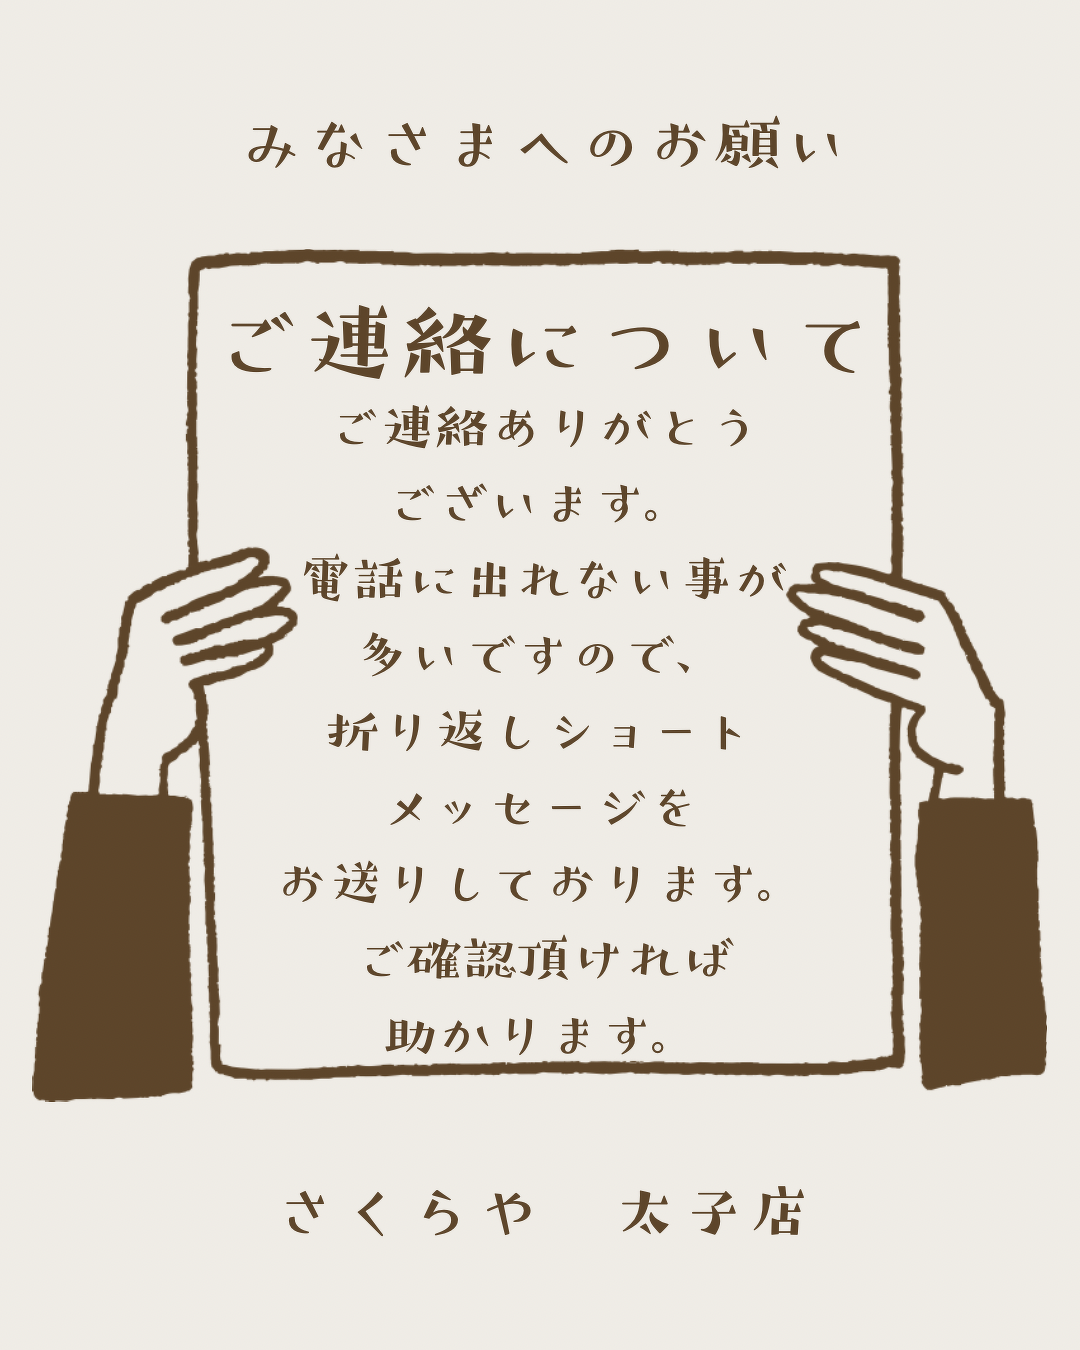 みなさまへのお願い
ご連絡について
ご連絡ありがとう
ございます。
電話に出れない事が
多いですので、
折り返しショート
メッセージを
お送りしております。
ご確認頂ければ
助かります。
さくらや　太子店